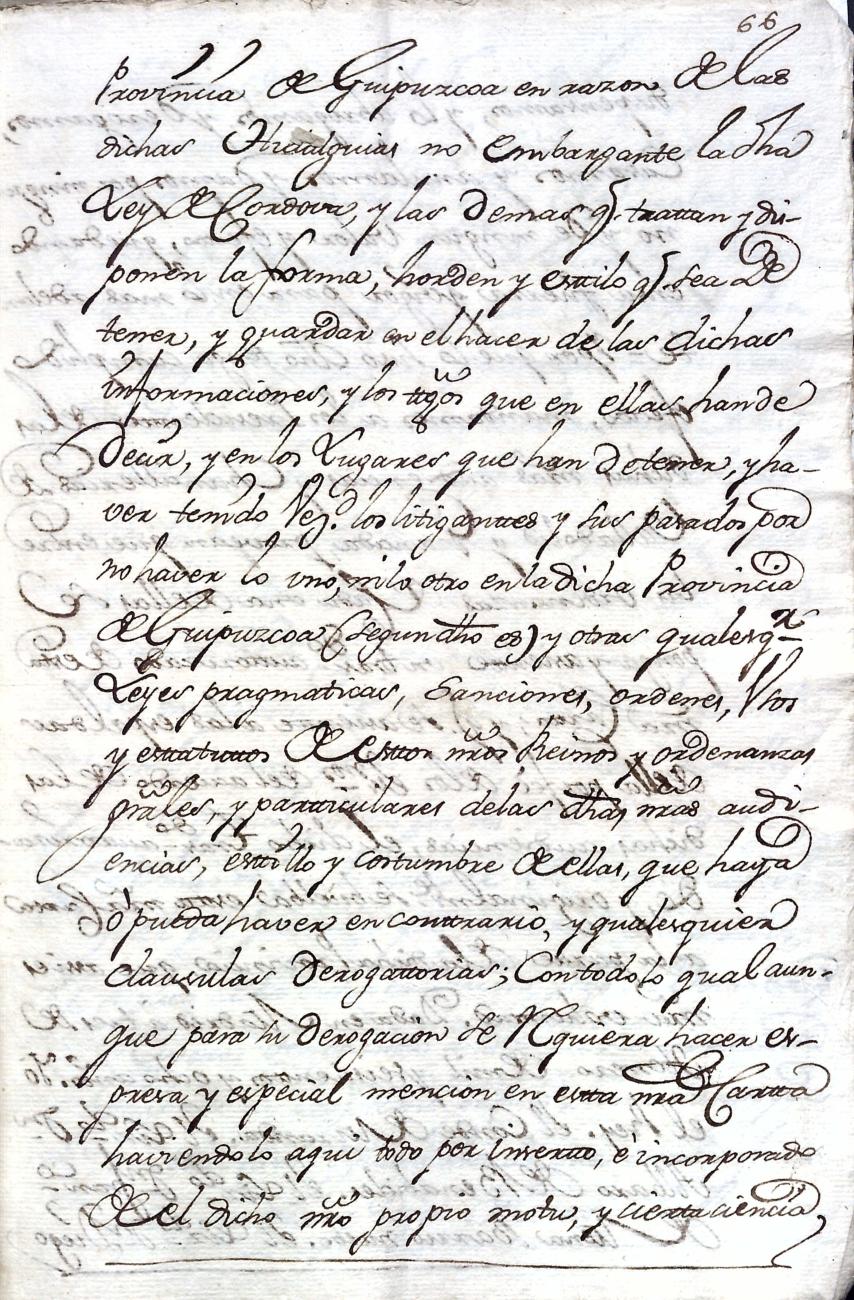 66
Provincia de Guipuzcoa en razon de las
dichas Hidalguias no embargante la dha
Ley de Cordova, y las demas q.e trattan y dis-
ponen la forma, horden y esttilo q.e sea de
tener, y guardar en el hacer de las dichas
informaciones, y los ttgos que en ellas han de
decir, y en los Lugares que han de tener, y ha-
ver tenido Vez.d los litiganttes y sus pasados por
no haver lo uno, ni lo otro en la dicha Provincia
de Guipuzcoa (segun dho es) y otras qualesq.r
Leyes pragmaticas, Sanciones, ordenes, Usos
y esttatuttos de esttos nros Reinos y ordenanzas
grales, y partticulares de las dhas nras audi-
encias, esttillo y costumbre de ellas, que haya
ó pueda haver en conttrario, y qualesquiera
clausulas derogattorias; Con todo lo qual aun-
que para su derogacion se Rquiera hacer es-
presa y especial mencion en estta nra Cartta
haviendolo aqui todo por insertto, é incorporado
de el dicho nro propio motu, y cierta ciencia